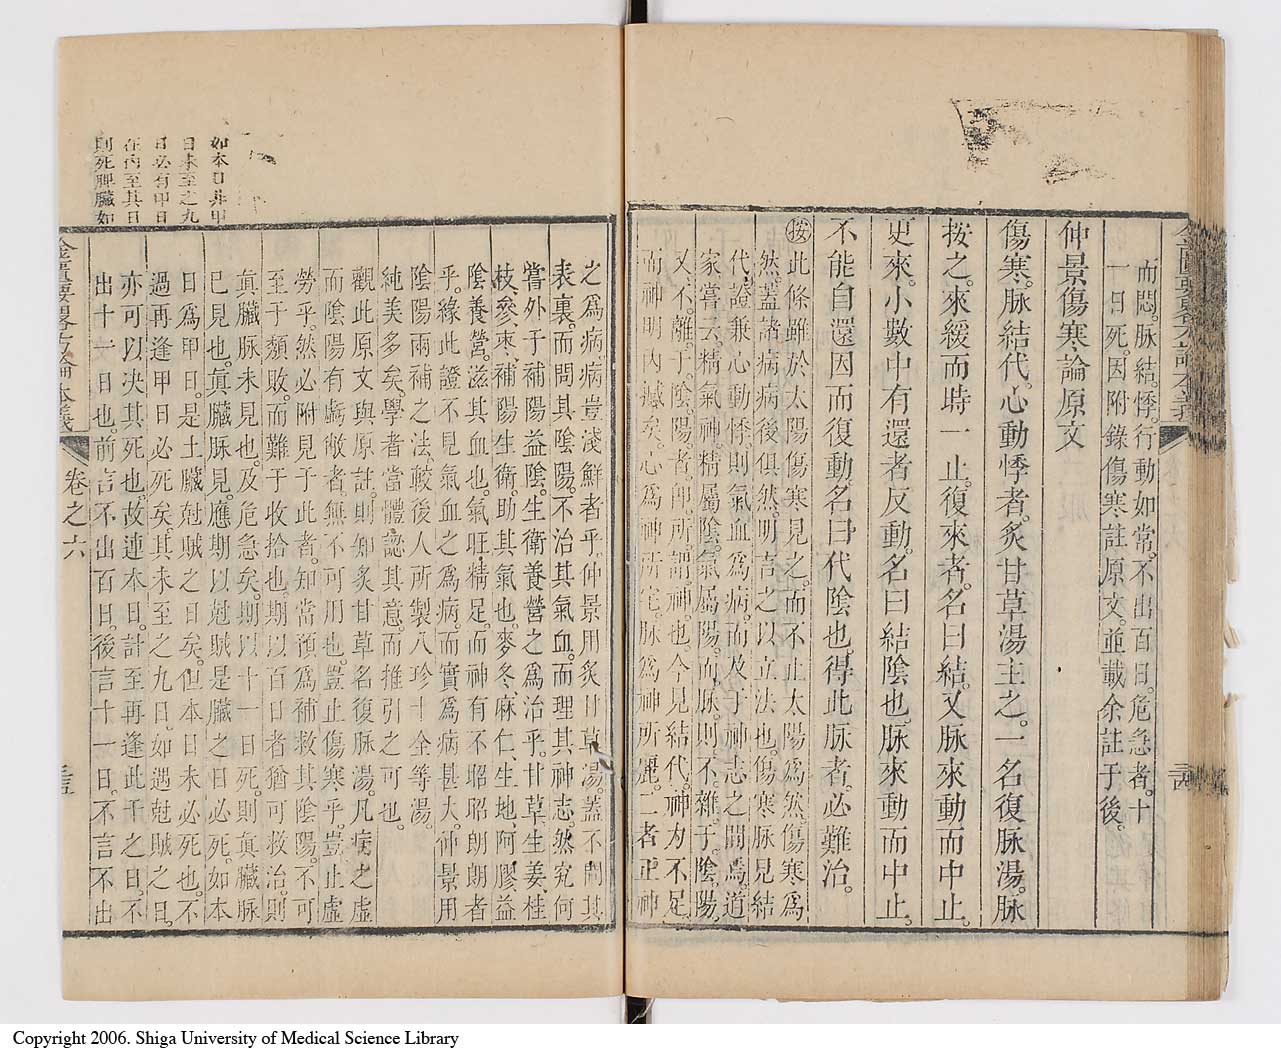 而悶。脉結悸。行動如常。不出百日。危急者。十
一日死。因附錄傷寒註原文。並載余註于後。
仲景傷寒論原文
傷寒。脉結代。心動悸者。炙甘草湯主之。一名復脉湯。脉
按之。來緩而時一止。復來者。名曰結。又脉來動而中止。
更來。小數中有還者反動。名曰結陰也。脉來動而中止。
不能自還因而復動。名曰代陰也。得此脉者。必難治。
按此條雖於太陽傷寒見之。而不止太陽爲然。傷寒爲
然。蓋諸病病後俱然。明言之以立法也。傷寒脉見結
代。證兼心動悸。則氣血爲病。而及于神志之間焉。道
家嘗云。精氣神。精屬陰。氣屬陽。而脉。則。不。雜。于。陰。陽。
又。不。離。于。陰。陽。者。卽。所。謂。神。也。今見結代。神力不足。
而神明內撼矣。心爲神所宅。脉爲神所麗。二者正神
之爲病。病豈淺鮮者乎。仲景用炙甘草湯。蓋不問其
表裏。而問其陰陽。不治其氣血。而理其神志。然究何
嘗外于補陽益陰。生衛養營之爲治乎。甘草生姜、桂
枝、參、棗、補陽生衛。助其氣也。麥冬、麻仁、生地、阿膠益
陰養營。滋其血也。氣旺精足。而神有不昭昭朗朗者
乎。緣此證不見氣血之爲病。而實爲病甚大。仲景用
陰陽兩補之法。較後人所製八珍十全等湯。
純美多矣。學者當體認其意。而推引之可也。
觀此原文與原註。則知炙甘草名復脉湯。凡病之虛
而陰陽有虧敗者。無不可用也。豈止傷寒乎。豈止虛
勞乎。然必附見于此者。知當預爲補救其陰陽。不可
至于頹敗。而難于收拾也。期以百日者猶可救治。則
眞臟脉未見也。及危急矣。期以十一日死。則眞臟脉
已見也。眞臟脉見。應期以尅賊是臟之日必死。如本
日爲甲日。是土臟尅賊之日矣。但本日未必死也。不
過再逢甲日必死矣。其未至之九日。如遇尅賊之日。
亦可以決其死也。故連本日。計至再逢此干之日。不
出十一日也。前言不出百日後言十一日。不言不出
如本日非甲
日未至之九
日必有甲日
在內至其日
則死脾臟如
金匱要畧方論本義
卷之六